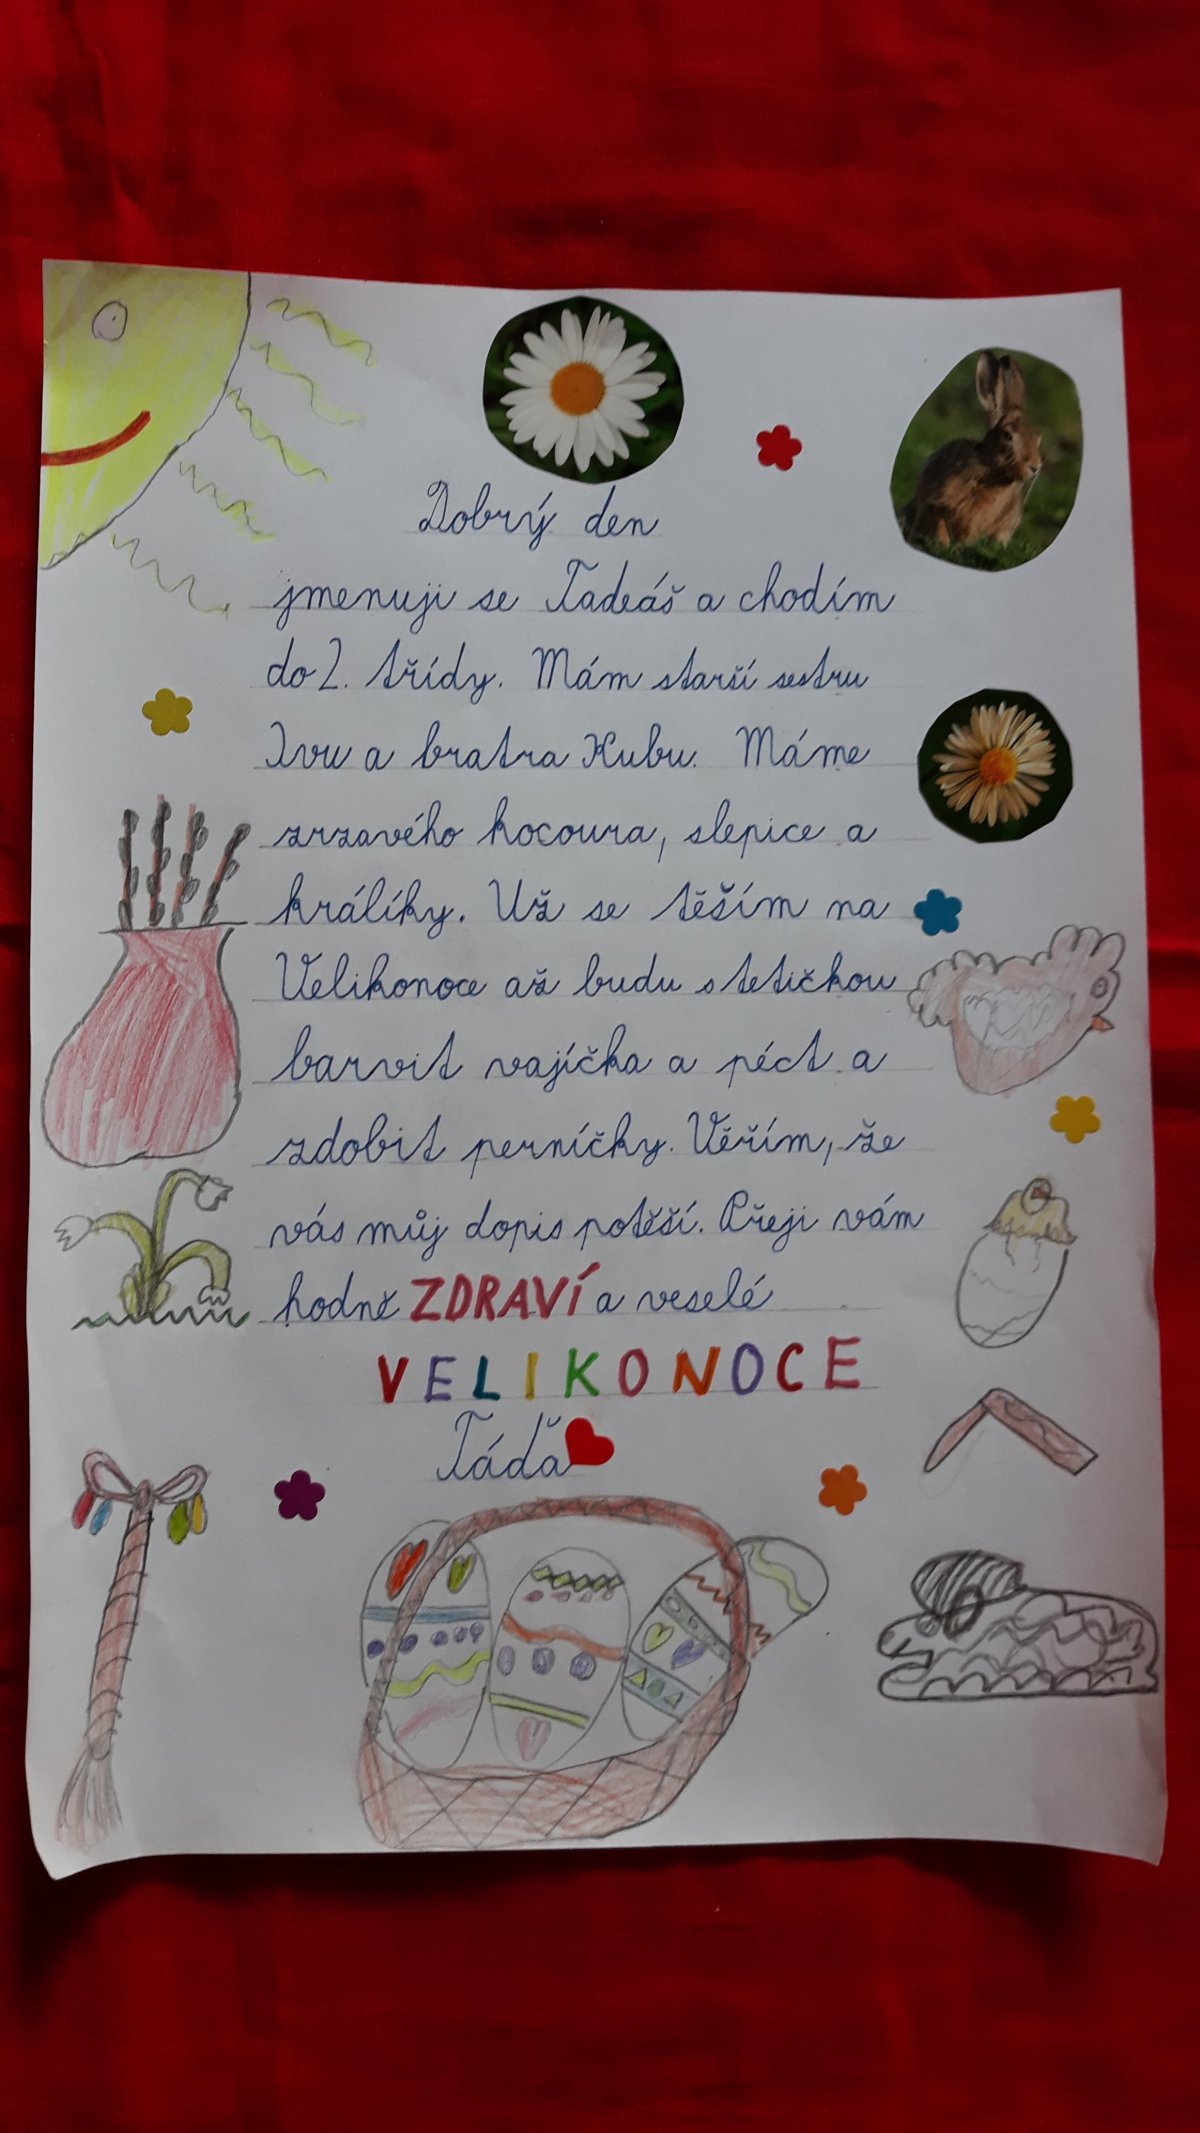 Dobrý den
jmenuji se Tadeáš a chodím
do 2. třídy. Mám starší sestru
Ivu a bratra Kubu. Máme
zrzavého kocoura, slepice a
králíky. Už se těším na
Velikonoce až budu s tetičkou
barvit vajíčka a péct a
zdobit perníčky. Věřím, že
vás můj dopis potěší. Přeji vám
hodně ZDRAVÍ a veselé
VELIKONOCE
Táďa